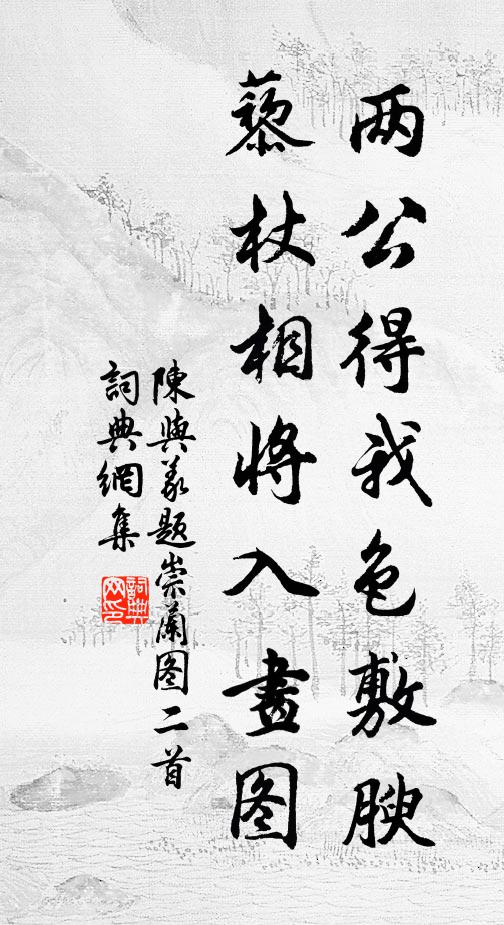 两公得我色敷腴
藜杖相将入畫图
陳與义題崇蘭图二首
詞典網集
詞典网印